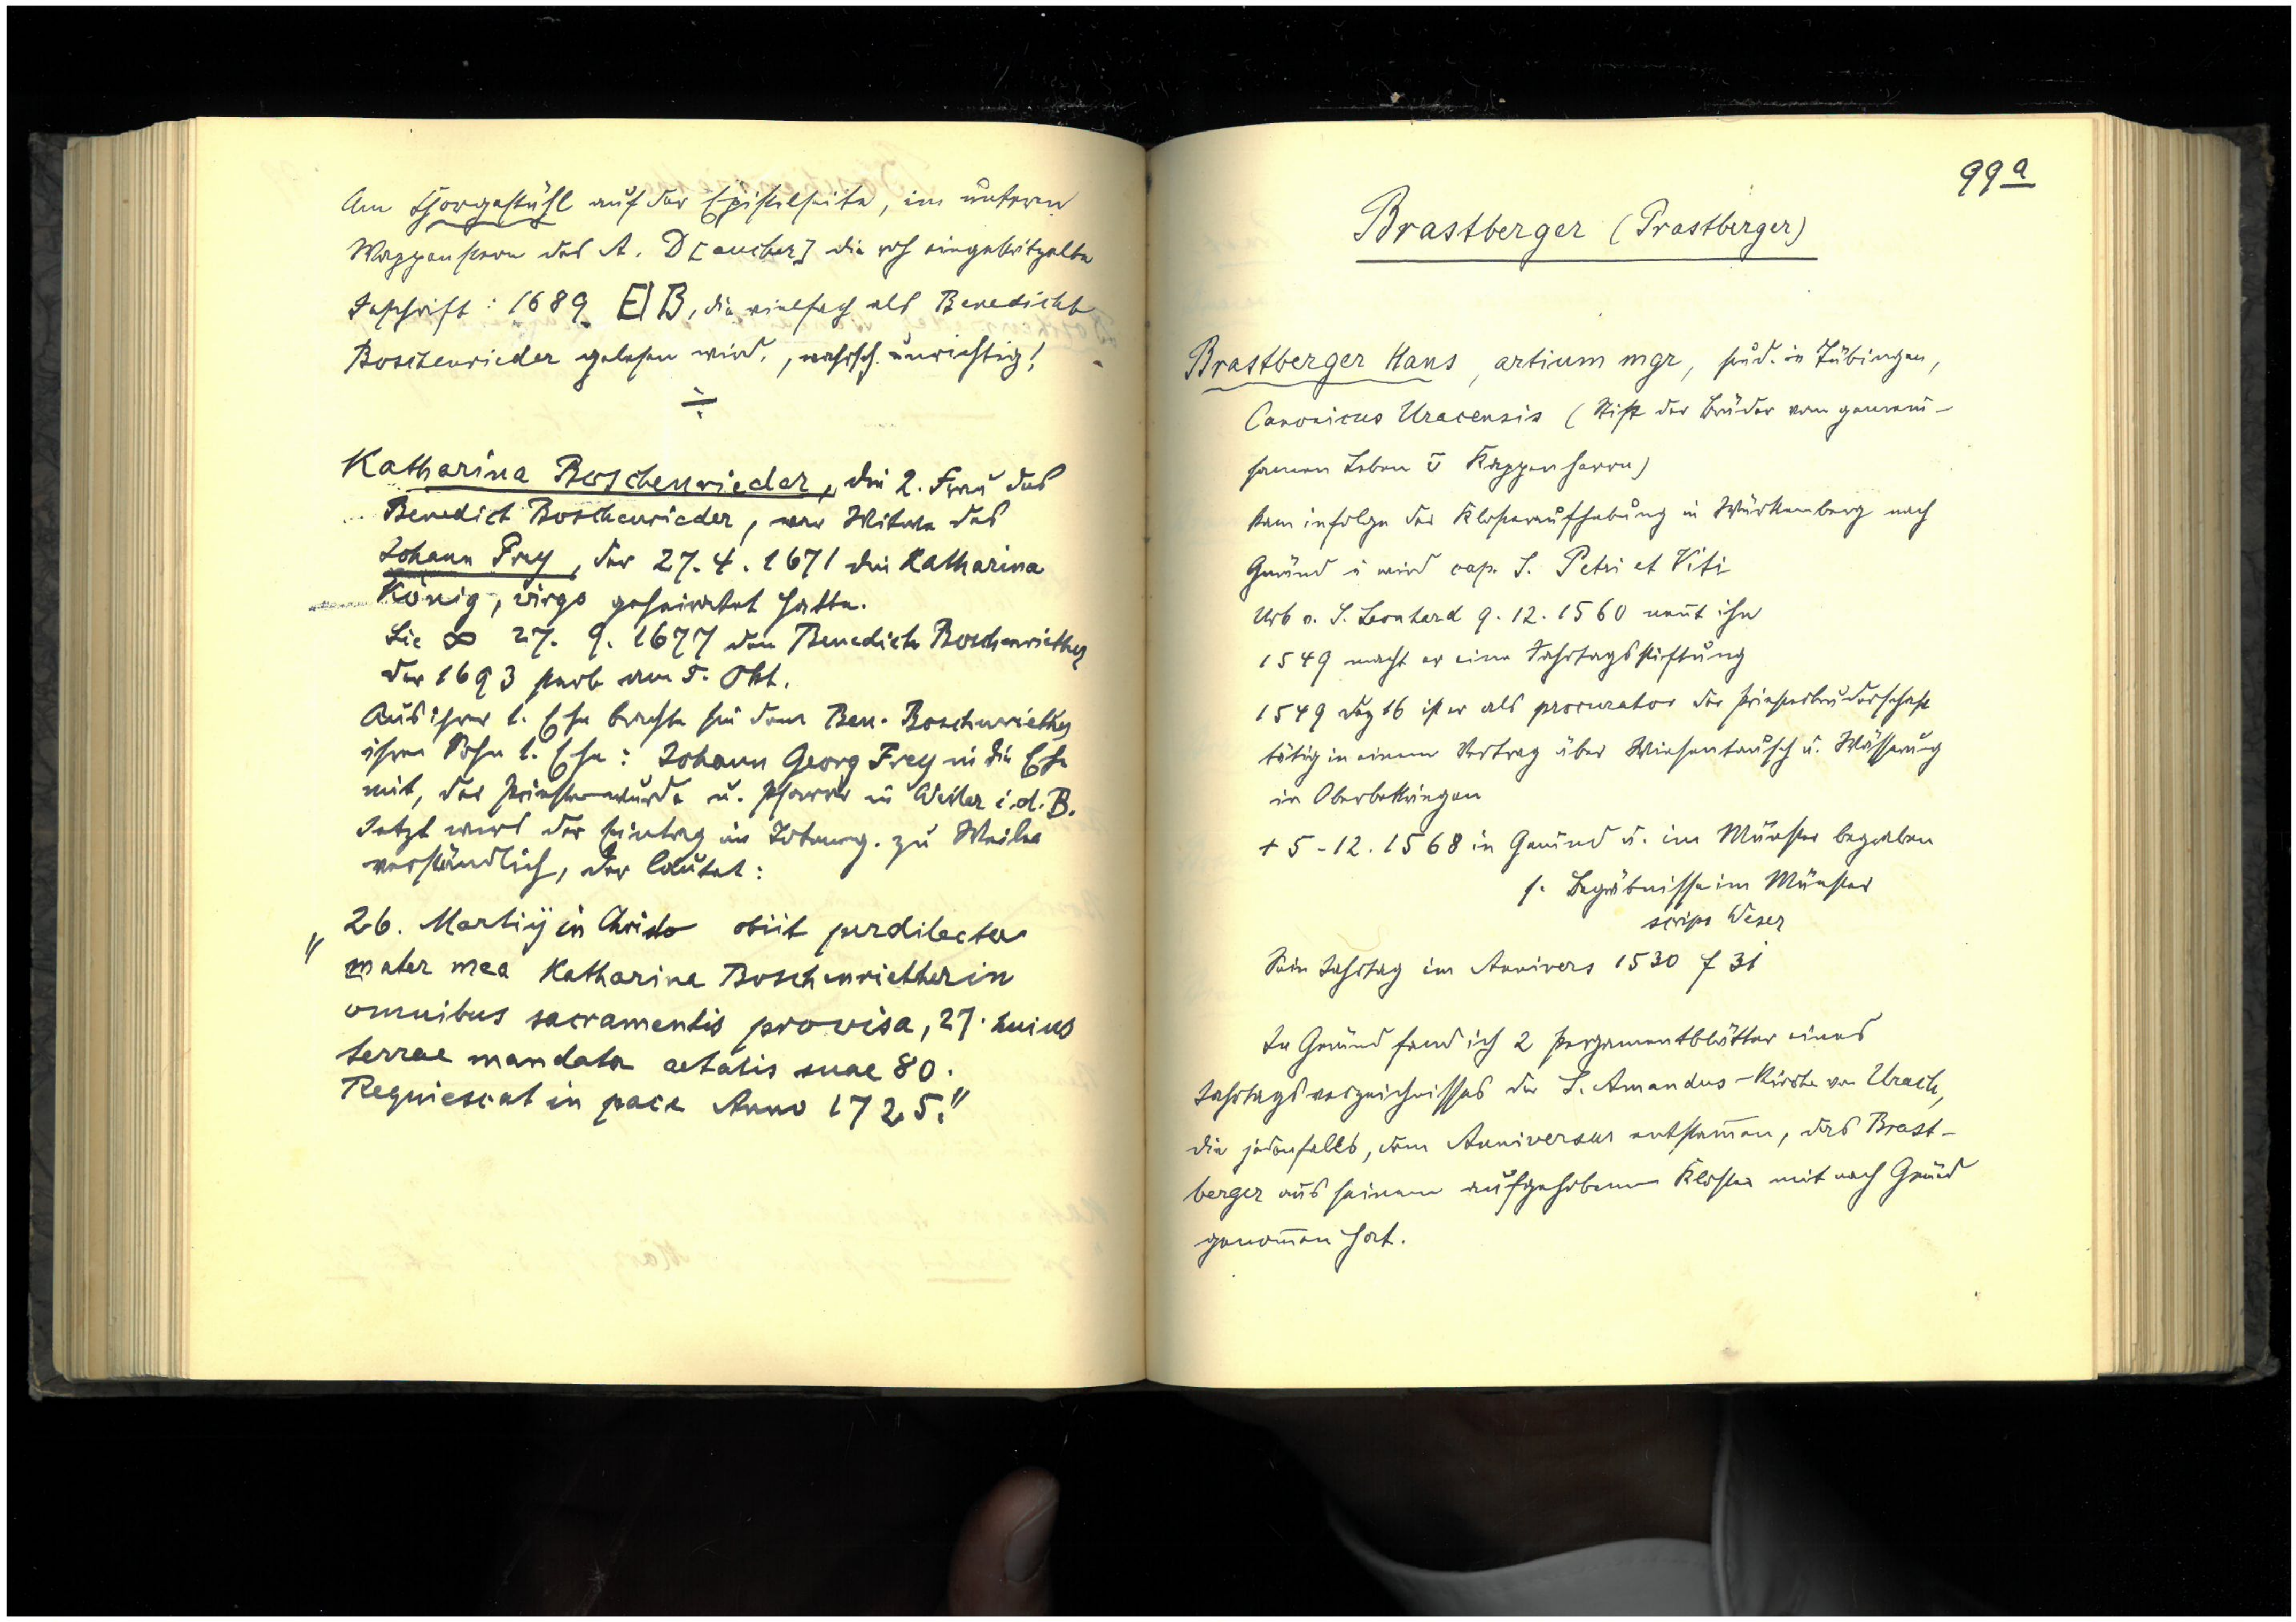 Am Chorgestühl auf der Epistelseite, im unteren
Wappenstein des A. D[aucher] die roh eingekritzelte
Inschrift: 1689 EIB, die vielfach als Benedickt
Boschenrieder gelesen wird, wahrsch. unrichtig!
Katharina Boschenrieder, die 2. Frau des
Benedict Boschenrieder, war Witwe des
Johann Frey, der 27.4.1671 die Katharina
König, virgo geheiratet hatte.
Sie ∞ 27. 9. 1677 den Benedict Boschenriether
der 1693 starb am 5. Okt.
Aus ihrer 1. Ehe brachte sie dem Ben. Boschenriether
ihren Sohn 1. Ehe: Johann Georg Frey in die Ehe
mit, der Priester wurde u. Pfarrer in Weiler i.d.B.
Jetzt wird der Eintrag im zu Weiler
verständlich, der lautet:
"26. Martiÿ in Christo obiit perdilecta
mater mea Katharina Boschenrietherin
omnibus sacramentis provisa, 27. huius
terrae mandata aetatis suae 80.
Requiescat in pace Anno 1725."
99a
Brastberger (Prastberger)
Brastberger Hans, artium mgr, stud. in Tübingen,
Canonicus Uracensis (Stift der Brüder vom gemein-
samen Leben u Kappenherrn)
kam infolge der Klosteraufhebung in Württemberg nach
Gmünd u wird cap. S. Petri et Viti
Urb v. S. Leonhard 9.12.1560 nennt ihn
1549 macht er eine Jahrtagsstiftung
1549 Dez 16 ist er als procurator der Priesterbruderschaft
tätig in einem Vertrag über Wiesentausch u. Wässerung
in Oberbettringen
+ 5-12.1568 in Gmünd u. im Münster begraben
s. Begräbnisse im Münster
scrips Weser
Sein Jahrtag im Annivers 1530 f 31
In Gmünd fand ich 2 Pergamentblätter eines
Jahrtagsverzeichnisses der S. Amandus-Kirche von Urach,
die jedenfalls, dem Anniversar entstam̄en, das Brast-
berger aus seinem aufgehobenen Kloster mit nach Gmünd
genom̄en hat.